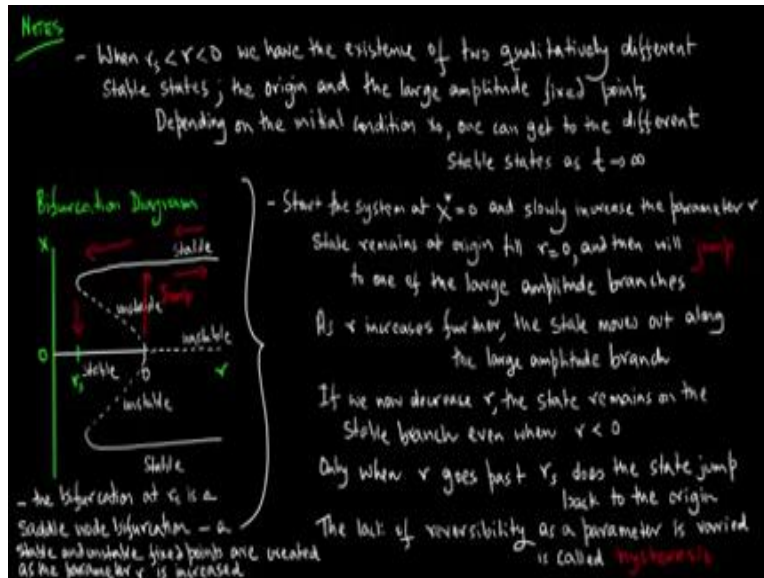 Notes
- When rs < r < 0 we have the existence of two qualitatively different
stable states; the origin and the large amplitude fixed points
Depending on the initial condition x0, one can get to the different
stable states as t → ∞
Bifurcation Diagram
X
stable
unstable
Jump
unstable
0
stable
rs
0
r
unstable
Stable
- the bifurcation at rs is a
saddle node bifurcation - a
stable and unstable fixed points are created
as the parameter r is increased
- Start the system at x* = 0 and slowly increase the parameter r
State remains at origin till r = 0, and then will jump
to one of the large amplitude branches
As r increases further, the state moves out along
the large amplitude branch
If we now decrease r, the state remains on the
stable branch even when r < 0
Only when r goes past rs does the state jump
back to the origin
The lack of reversibility as a parameter is varied
is called hysteresis